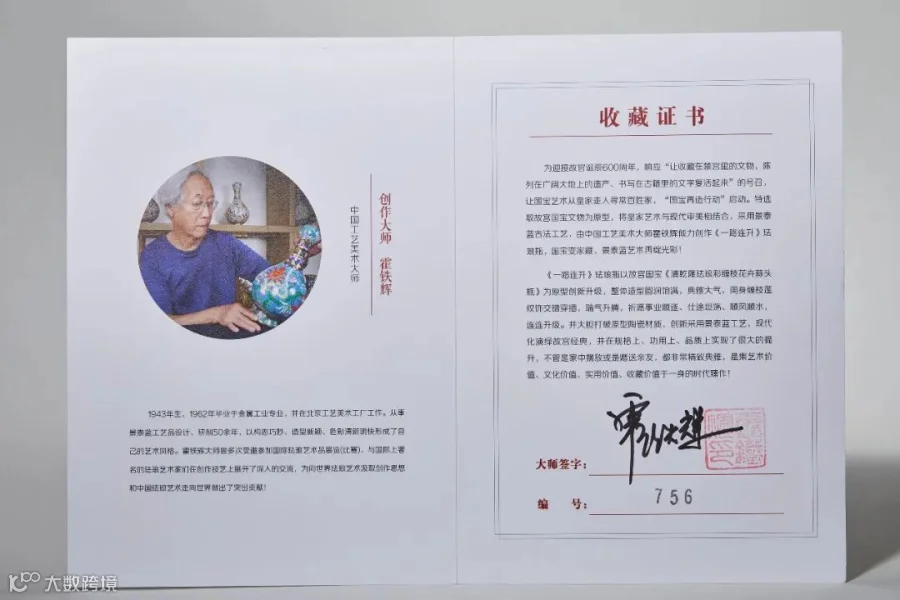 创作大师 霍铁辉
中国工艺美术大师
1943年生，1962年毕业于金属工业专业，并在北京工艺美术工厂工作。从事
景泰蓝工艺品设计、研制50余年，以构思巧妙、造型新颖、色彩清新明快形成了自
己的艺术风格。霍铁辉大师曾多次受邀参加国际珐琅艺术品展览(比赛)，与国际上著
名的珐琅艺术家们在创作技艺上展开了深入的交流，为向世界珐琅艺术汲取创作思想
和中国珐琅艺术走向世界做出了突出贡献！
收藏证书
为迎接故宫诞辰600周年，响应“让收藏在禁宫里的文物，陈
列在广阔大地上的遗产、书写在古籍里的文字复活起来”的号召，
让国宝艺术从皇家走入寻常百姓家，“国宝再造行动”启动。特选
取故宫国宝文物为原型，将皇家艺术与现代审美相结合，采用景泰
蓝古法工艺，由中国工艺美术大师霍铁辉能力创作《一路连升》珐
琅瓶，国宝变家藏，景泰蓝艺术再绽光彩！
《一路连升》珐琅瓶以故宫国宝《清乾隆珐琅彩缠枝花卉蒜头
瓶》为原型创新升级，整体造型圆润饱满，典雅大气，周身缠枝莲
纹饰交错穿插，瑞气升腾，祈愿事业顺遂、仕途坦荡、顺风顺水，
连连升级。并大胆打破原型陶瓷材质，创新采用景泰蓝工艺，现代
化演绎故宫经典，并在规格上、功用上、品质上实现了很大的提
升，不管是家中摆放或是赠送亲友，都非常精致典雅，是集艺术价
值、文化价值、实用价值、收藏价值于一身的时代臻作！
大师签字：
编 号： 756
大数跨境